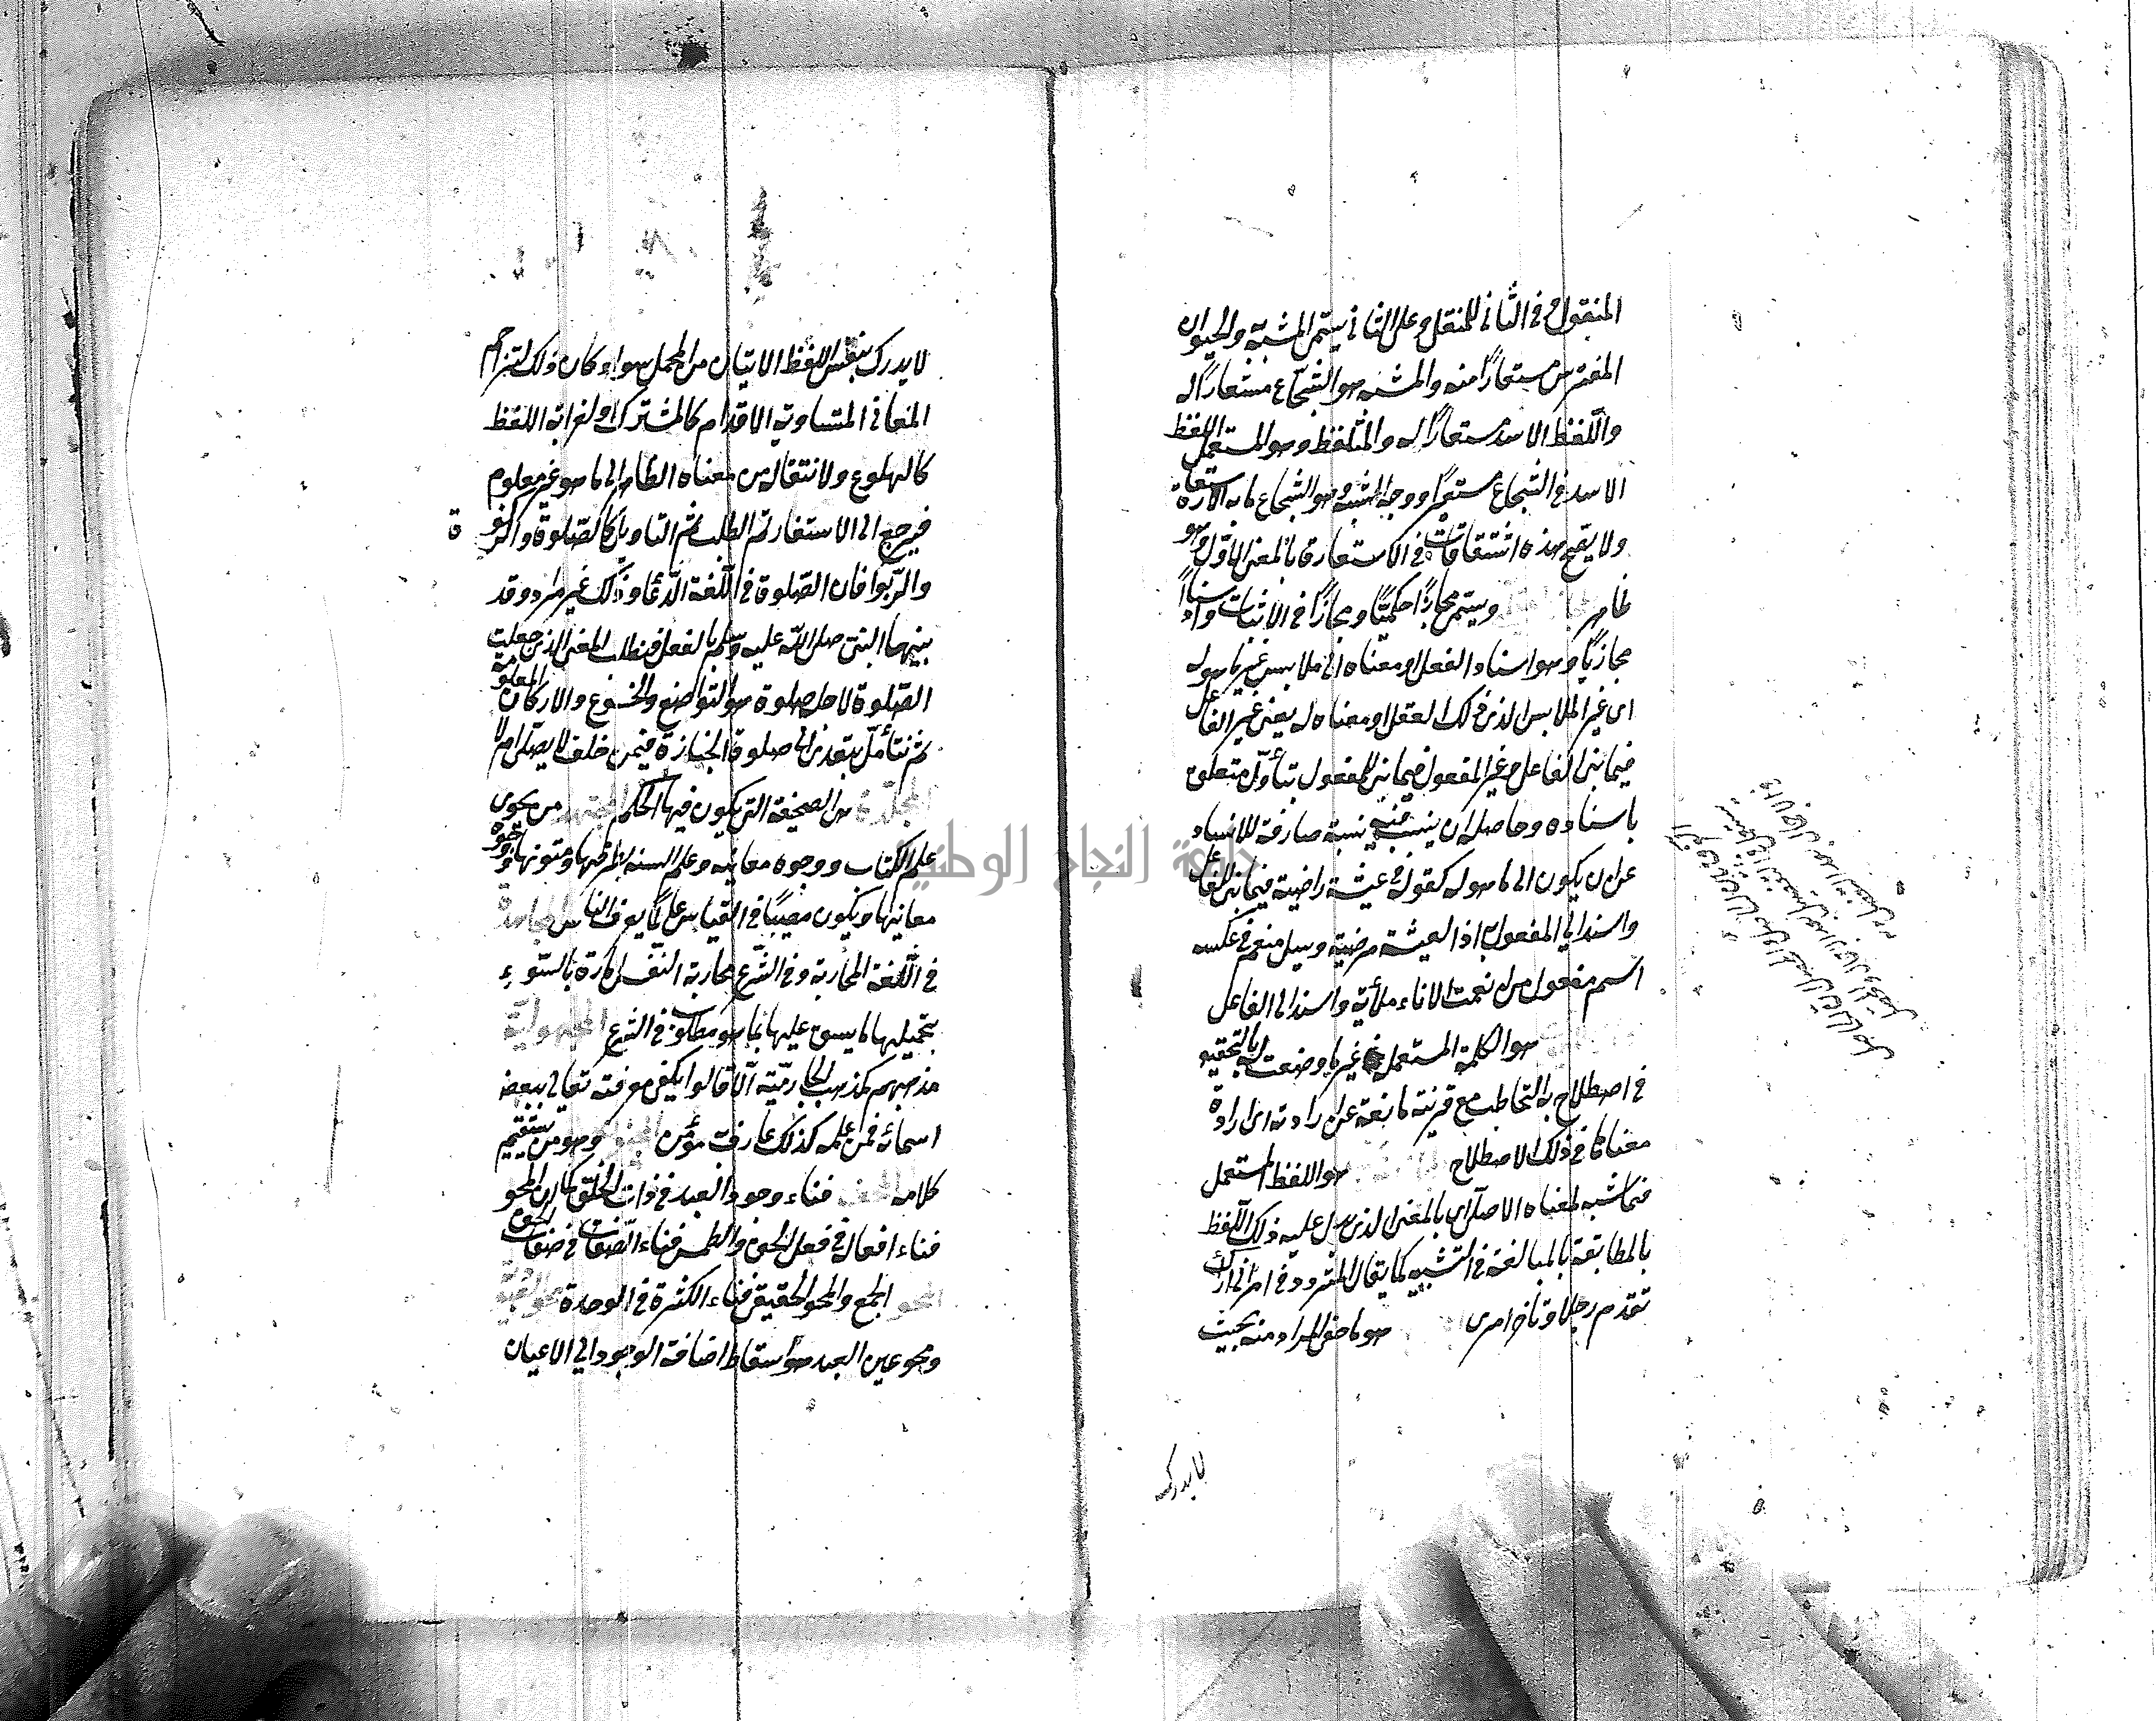 المنقول وفي الثاني للمنقل وعلى الثاني يسمى المشبه والحيوان
المفترس مستعارًا منه والمشبه هو الشجاع مستعارًا له
واللفظ الاسد مستعارًا له والمتلفظ وهو المستعمل اللفظ
الاسد في الشجاع مستعيرًا ووجه الشبه وهو الشجاع ما به الاستعارة
ولا يقع هذه اشتقاقات في الاستعارة بالمعنى الاول وهو
ظاهر ويسمى مجازًا حكميًا ومجازًا في الاثبات واسنادًا
مجازيًا وهو اسناد الفعل او معناه الى ملابس غير ما هو له
اى غير الملابس الذى ذلك الفعل او معناه له يعنى غير الفاعل
فيما بنى للفاعل وغير المفعول فيما بنى للمفعول بتأول متعلق
باسناده وحاصله ان ينسب نسبة صارفة للاسناد
عن ان يكون الى ما هو له كقوله في عيشة راضية فيما بنى للفاعل
واسند الى المفعول به اذ العيشة مرضية وسيل مفعم في عكسه
اسم مفعول من افعمت الاناء ملأته واسند الى الفاعل
هو الكلمة المستعملة في غير ما وضعت له بالتحقيق
في اصطلاح به التخاطب مع قرينة مانعة عن ارادته اى ارادة
معناها في ذلك الاصطلاح هو اللفظ المستعمل
فيما شبه لمعناه الاصلى اى بالمعنى الذى يدل عليه ذلك اللفظ
بالمطابقة بالمبالغة في التشبيه كما يقال للمتردد في امر انى اراك
تقدم رجلا وتؤخر اخرى هو ما خفى المراد منه بحيث
لا يدرك
لا يدرك بنفس اللفظ الا ببيان من المجمل سواء كان ذلك لتزاحم
المعانى المتساوية الاقدام كالمشترك او لغرابة اللفظ
كالهلوع ولانتقاله من معناه الظاهر الى ما هو غير معلوم
فيرجع الى الاستفسار ثم الطلب ثم التاويل كالصلوة والزكوة
والربوا فان الصلوة في اللغة الدعاء وذلك غير مراد وقد
بينها النبى صلى الله عليه وسلم بالفعل فنطلب المعنى الذى جعلت
الصلوة لاجله صلوة هو التواضع والخشوع والاركان المعلومة
ثم نتأمل يتعدى الى صلوة الجنازة فيمن خلف لا يصلى ام لا
المجلة هى الصحيفة التى يكون فيها الحكم المجتهد من يحوى
علم الكتاب ووجوه معانيه وعلم السنة بطرقها ومتونها ووجوه
معانيها ويكون مصيبًا في القياس عالمًا بعرف الناس المجاهدة
في اللغة المحاربة وفي الشرع محاربة النفس الامارة بالسوء
بتحميلها ما يشق عليها بما هو مطلوب في الشرع المجهولية
مذهبهم كمذهب الحازمية الا قالوا يكفى معرفته تعالى ببعض
اسمائه فمن علمه كذلك عارف مؤمن وهو من يستقيم
كلامه فناء وجود العبد في ذات الحق كما ان المحو
فناء افعاله في فعل الحق والطمس فناء الصفات في صفات الحق
محو الجمع والمحو الحقيقى فناء الكثرة في الوحدة محو العبودية
ومحو عين العبد هو اسقاط اضافة الوجود الى الاعيان
جامعة النجاح الوطنية